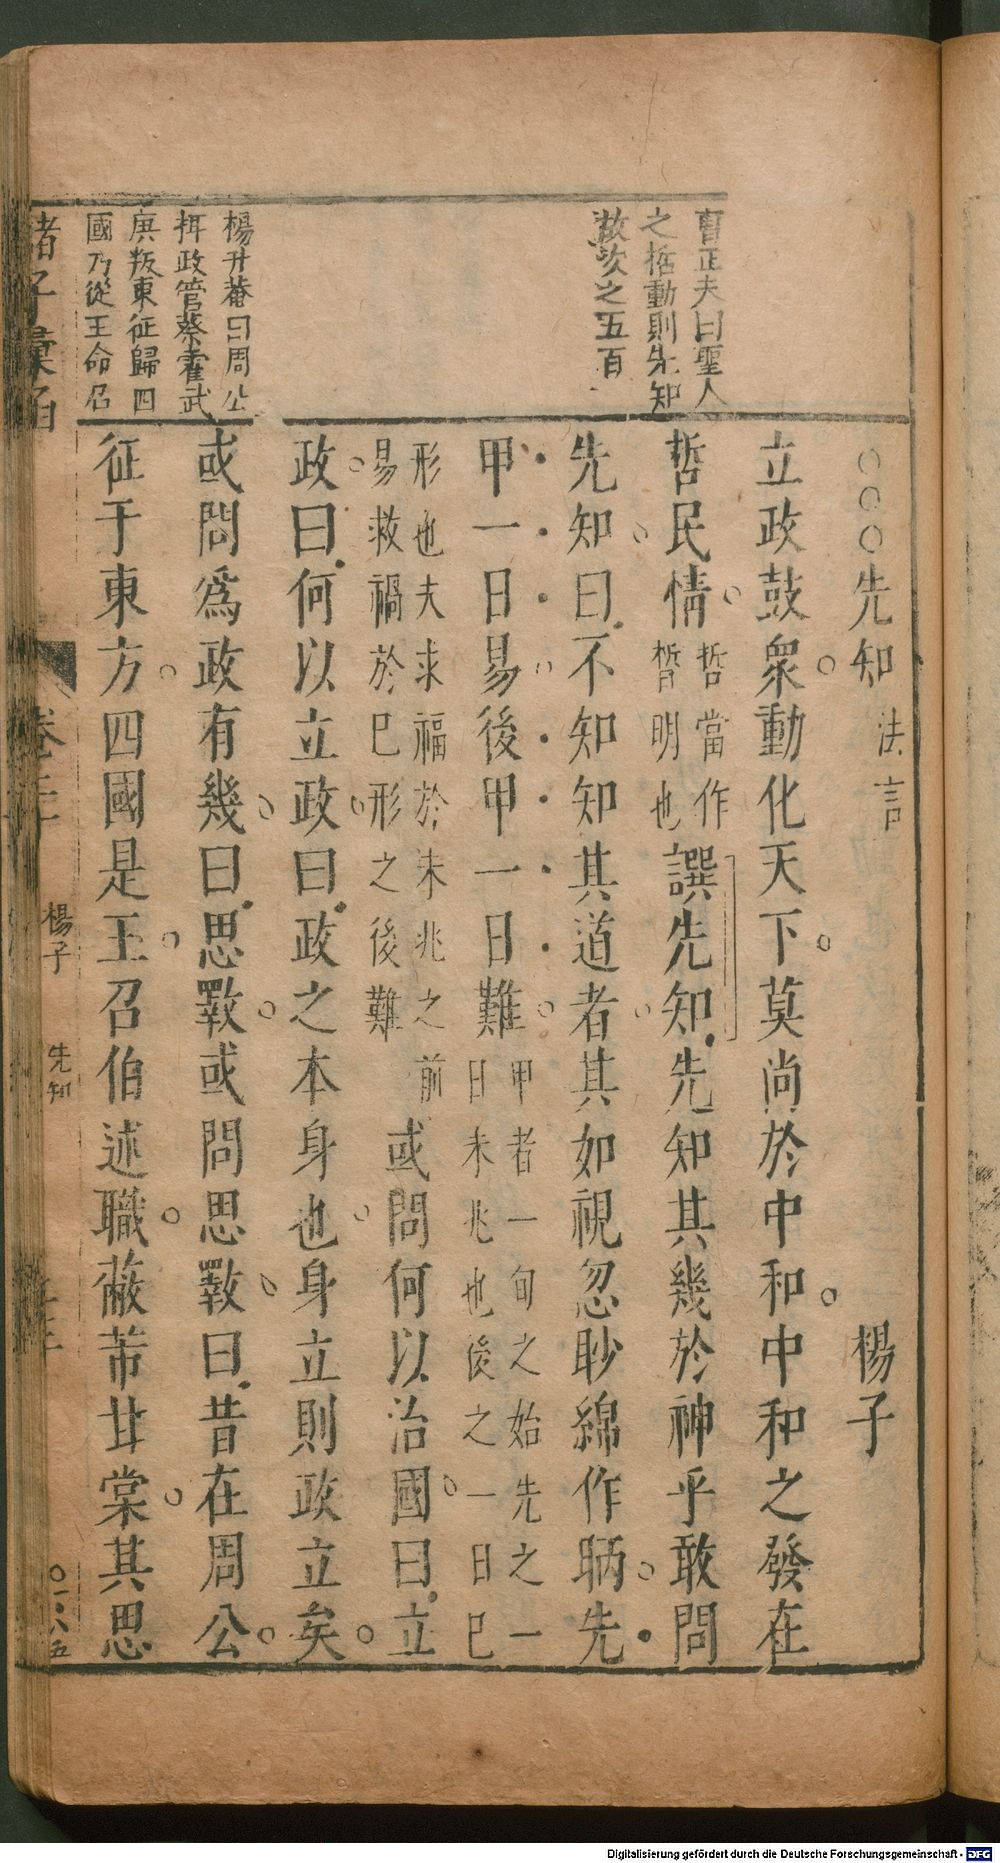 曺正夫曰聖人
之㧞動則先知
故次之五百
楊升菴曰周公
揖政管蔡霍武
庚叛東征歸四
國乃從王命召
○○○先知 法言 楊子
立政鼓衆動化天下莫尚於中和中和之發在
哲民情 哲當作
晢明也 譔先知先知其幾於神乎敢問
先知曰不知知其道者其如視忽眇綿作昞先
甲一日易後甲一日難 甲者一旬之始先之一
日未兆也後之一日已
形也夫求福於未兆之前
易救禍於已形之後難 或問何以治國曰立
政曰何以立政曰政之本身也身立則政立矣
或問爲政有幾曰思斁或問思斁曰昔在周公
征于東方四國是王召伯述職蔽芾甘棠其思
諸子彙函
卷二十 楊子 先知
〇一·八五
Digitalisierung gefördert durch die Deutsche Forschungsgemeinschaft - DFG